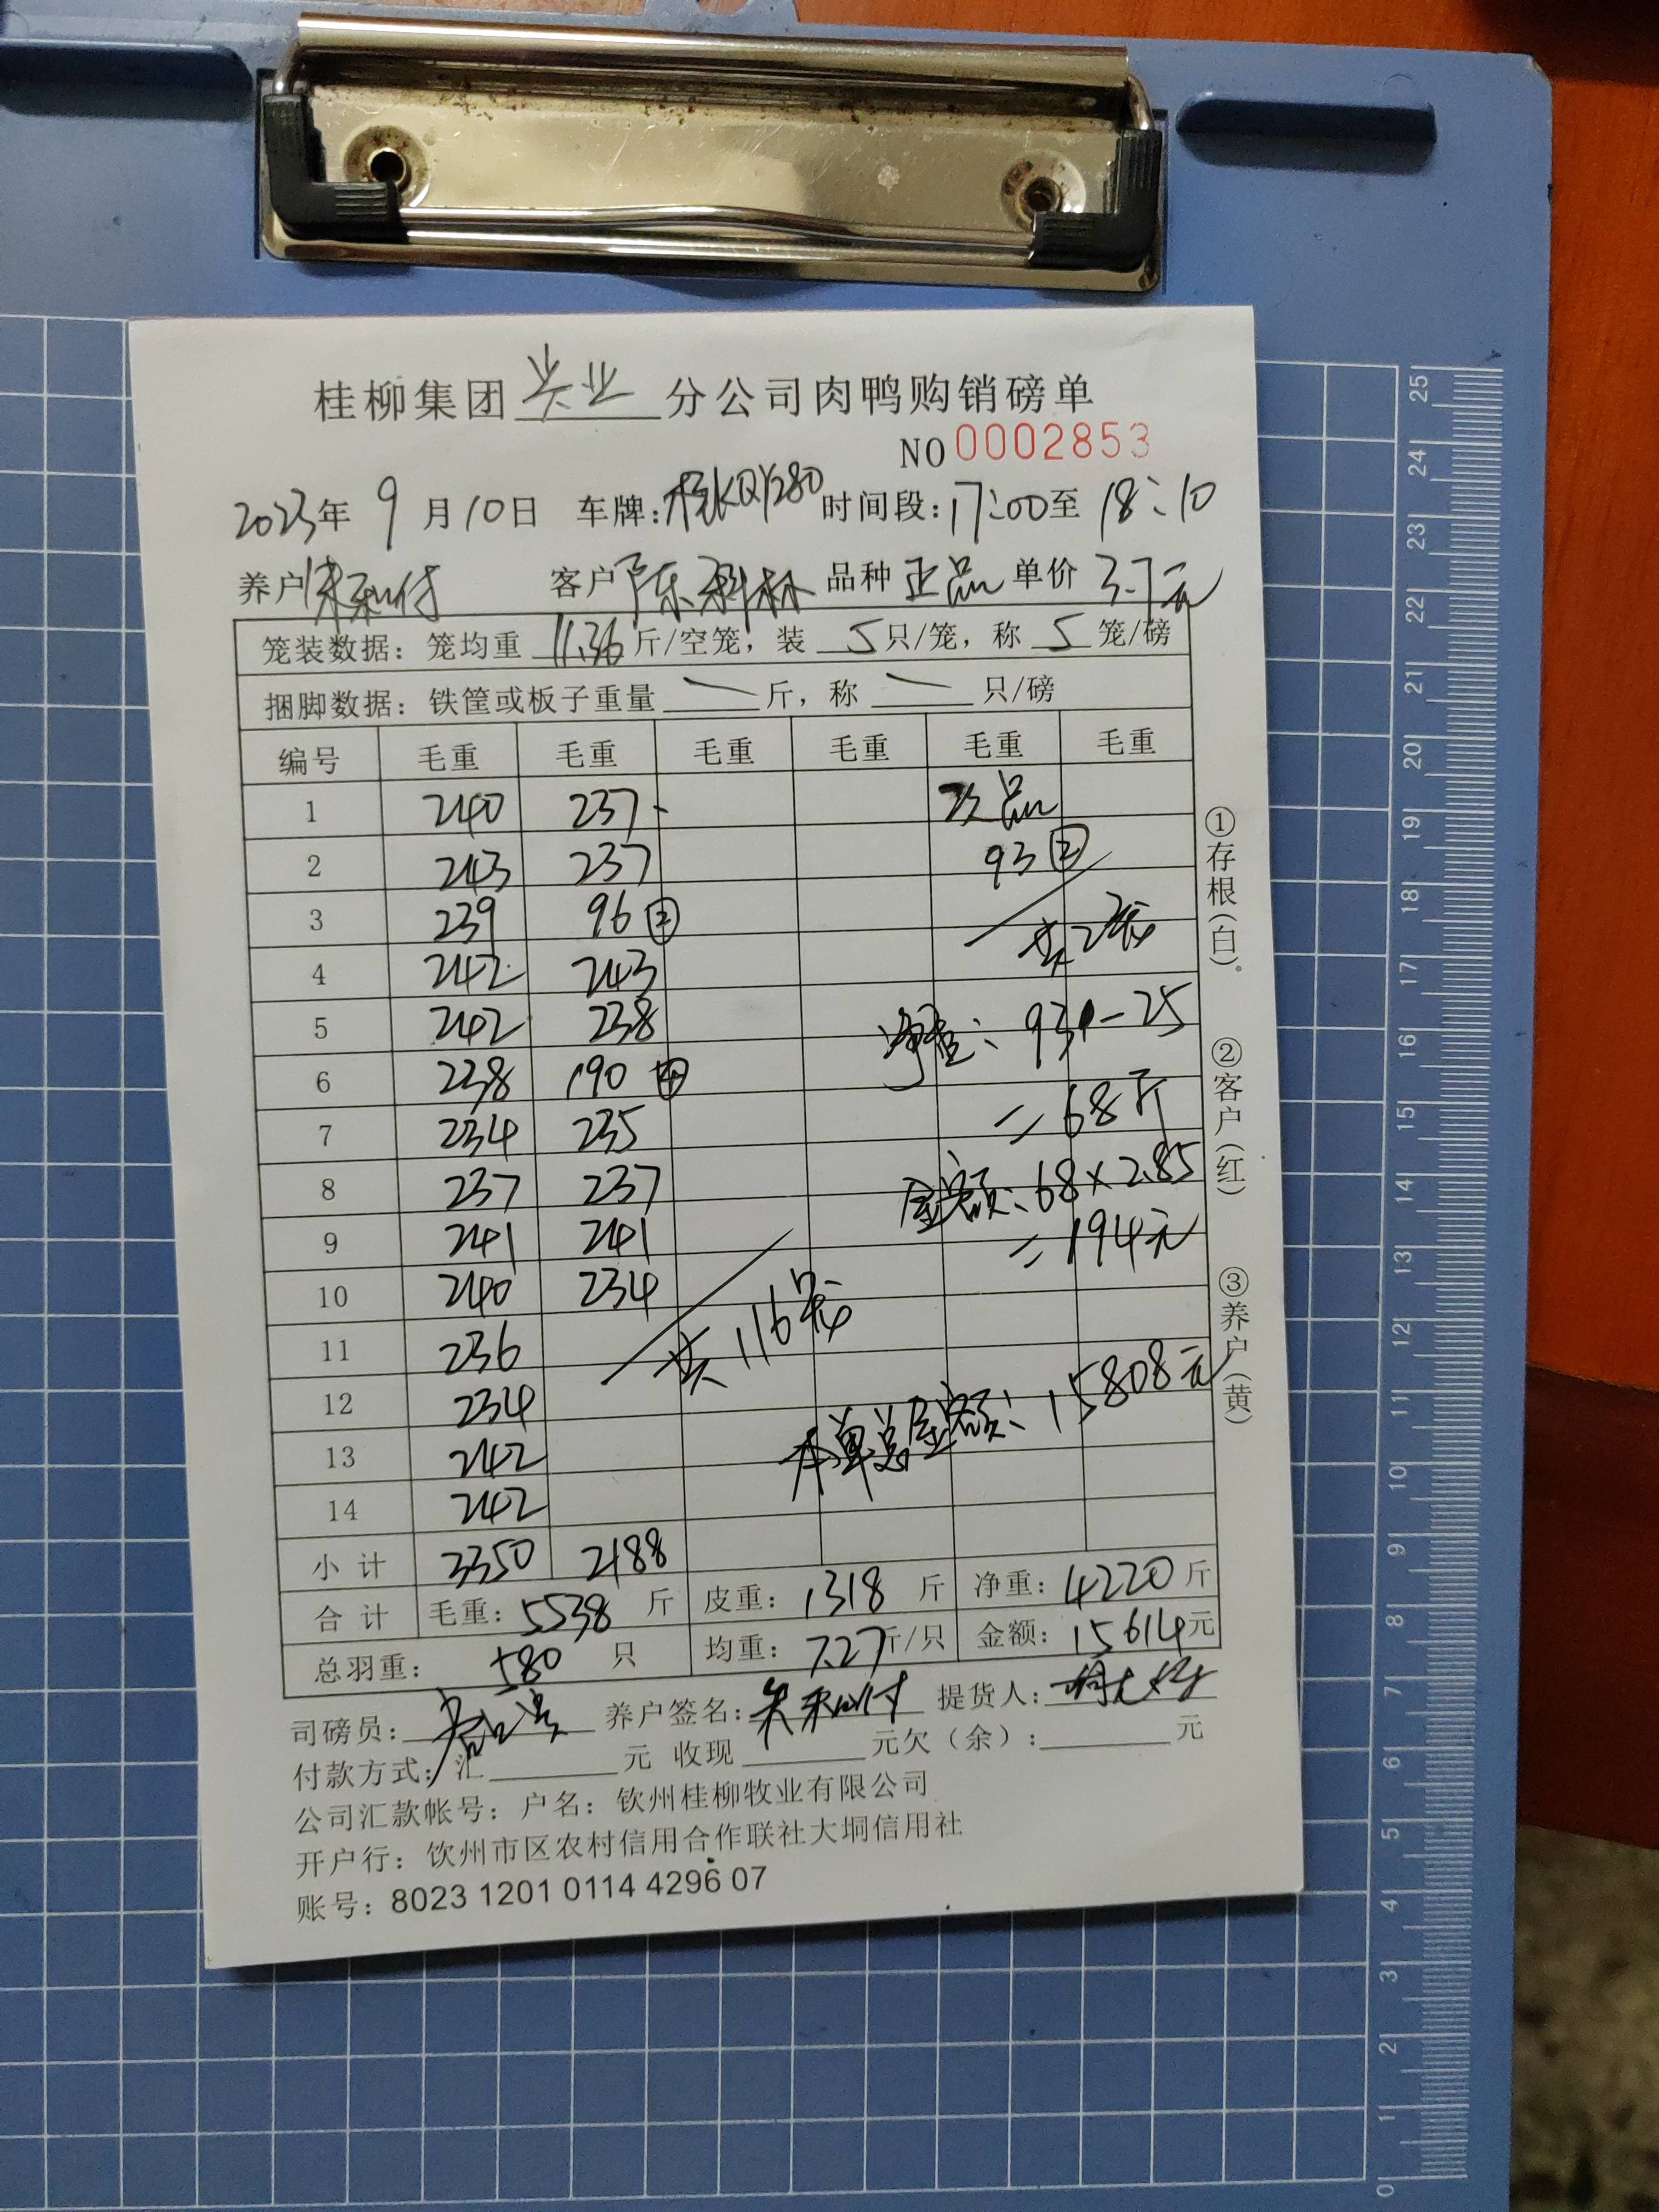 桂柳集团 兴业 分公司肉鸭购销磅单
NO 0002853
2023年 9 月 10日 车牌: 桂KQY280 时间段: 17:00至 18:10
养户 客户 陈 林 品种 正品 单价 3.7元
笼装数据: 笼均重 11.36 斤/空笼, 装 5 只/笼, 称 5 笼/磅
捆脚数据: 铁筐或板子重量 \ 斤, 称 \ 只/磅
编号 毛重 毛重 毛重 毛重 毛重 毛重
1 240 237 次品
2 243 237 93 ②
3 239 96 ② 共2笼
4 242 243
5 242 238 净重: 93-25
6 238 190 ④ =68斤
7 234 235
8 237 237 金额: 68×2.85
9 241 241 =194元
10 240 234
11 236 共116笼
12 234
13 242 本单总金额: 15808元
14 242
小计 3350 2188
合计 毛重: 5538 斤 皮重: 1318 斤 净重: 4220 斤
总羽重: 580 只 均重: 7.27斤/只 金额: 15614元
司磅员: 养户签名: 提货人:
付款方式: 汇 元 收现 元欠(余): 元
公司汇款帐号: 户名: 钦州桂柳牧业有限公司
开户行: 钦州市区农村信用合作联社大垌信用社
账号: 8023 1201 0114 4296 07
①存根(白)
②客户(红)
③养户(黄)
25
24
23
22
21
20
19
18
17
16
15
14
13
12
11
10
9
8
7
6
5
4
3
2
1
0